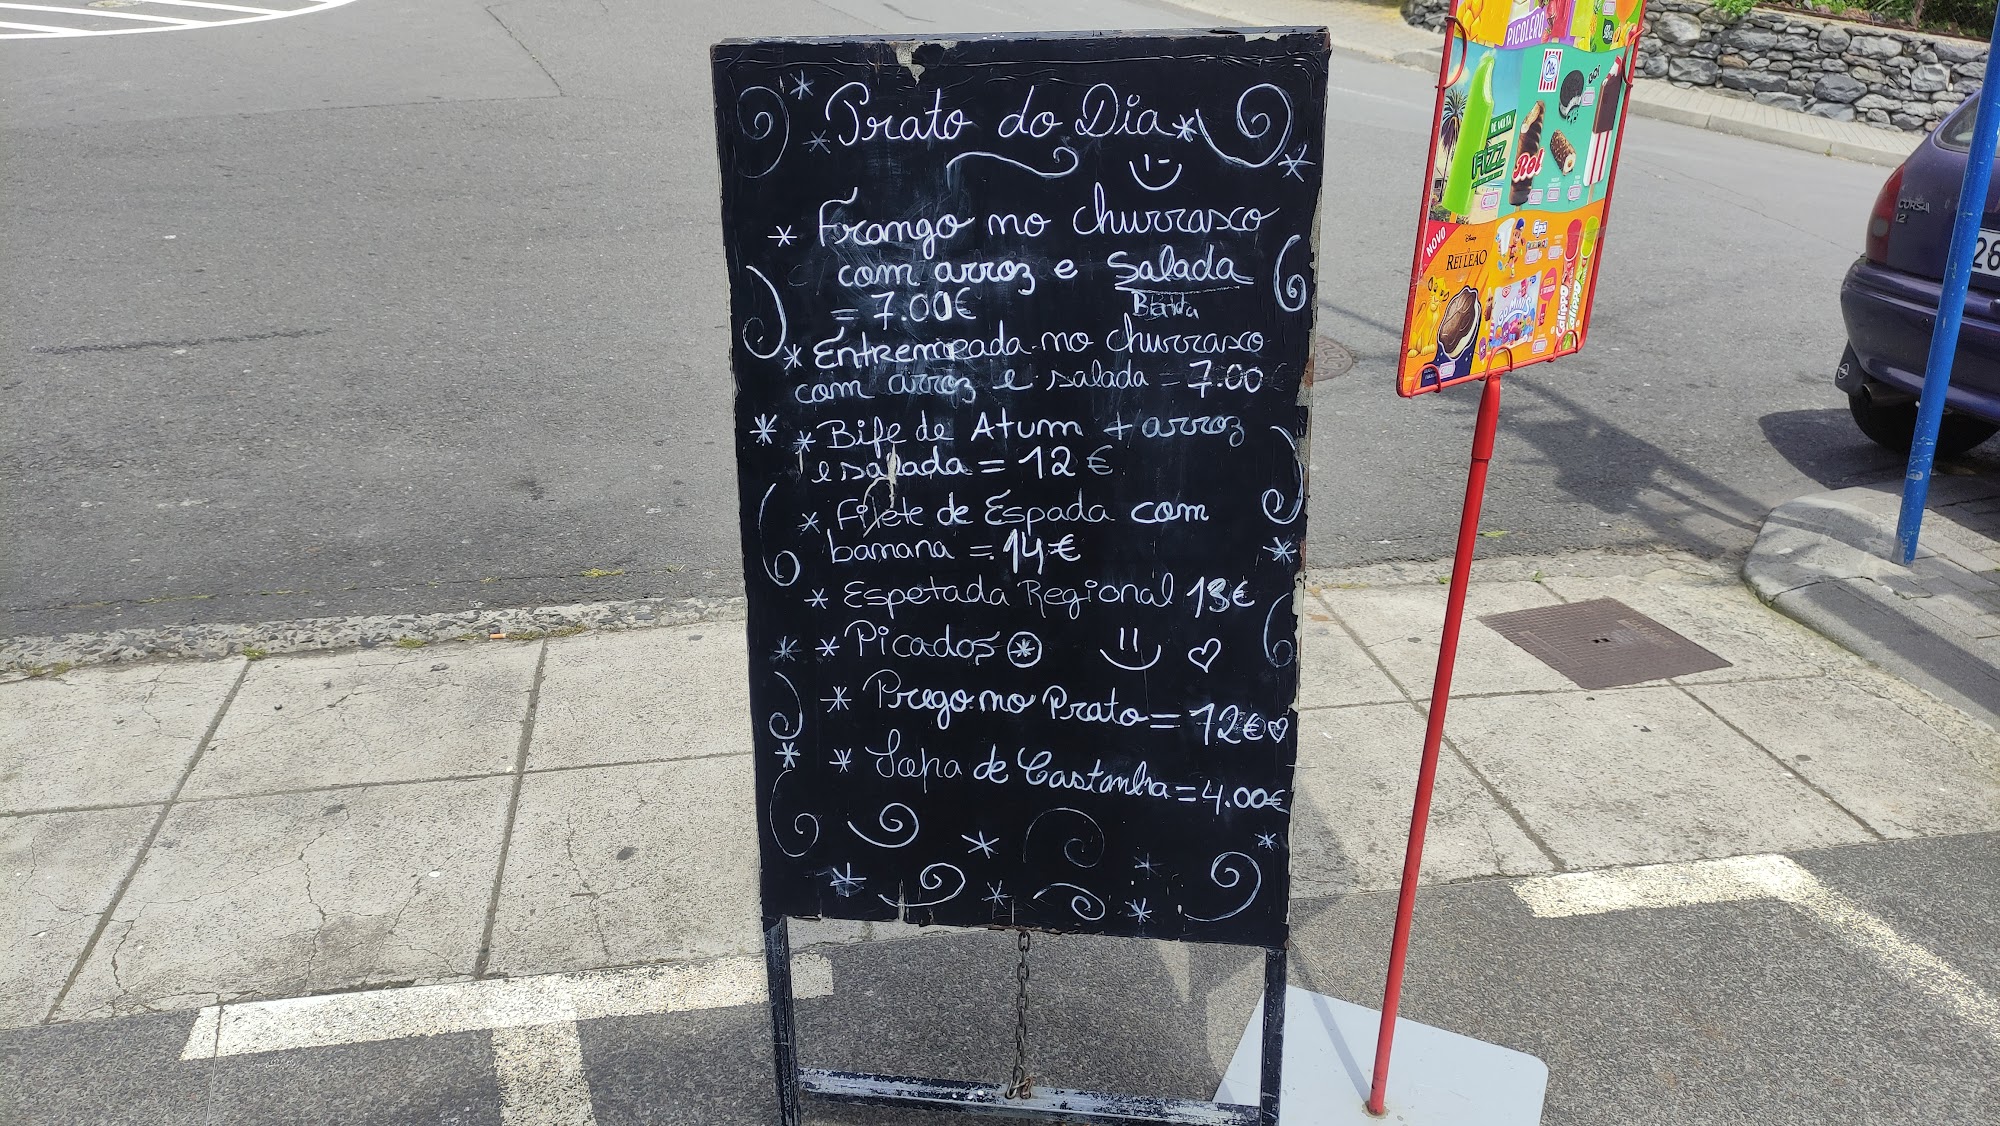 Prato do Dia
Frango no churrasco
com arroz e Salada
= 7.00€
Entremeada no churrasco
com arroz e salada = 7.00
Bife de Atum + arroz
e salada = 12 €
Filete de Espada com
banana = 14€
Espetada Regional 13€
Picados
Prego no Prato = 12€
Sopa de Castanha = 4.00€
PICOLERO
Olá
DE VOLTA
FIZZ
Rol
NOVO
Disney
REI LEÃO
Epá
MINIS
Calippo
Calippo
CORSA
1.2
26